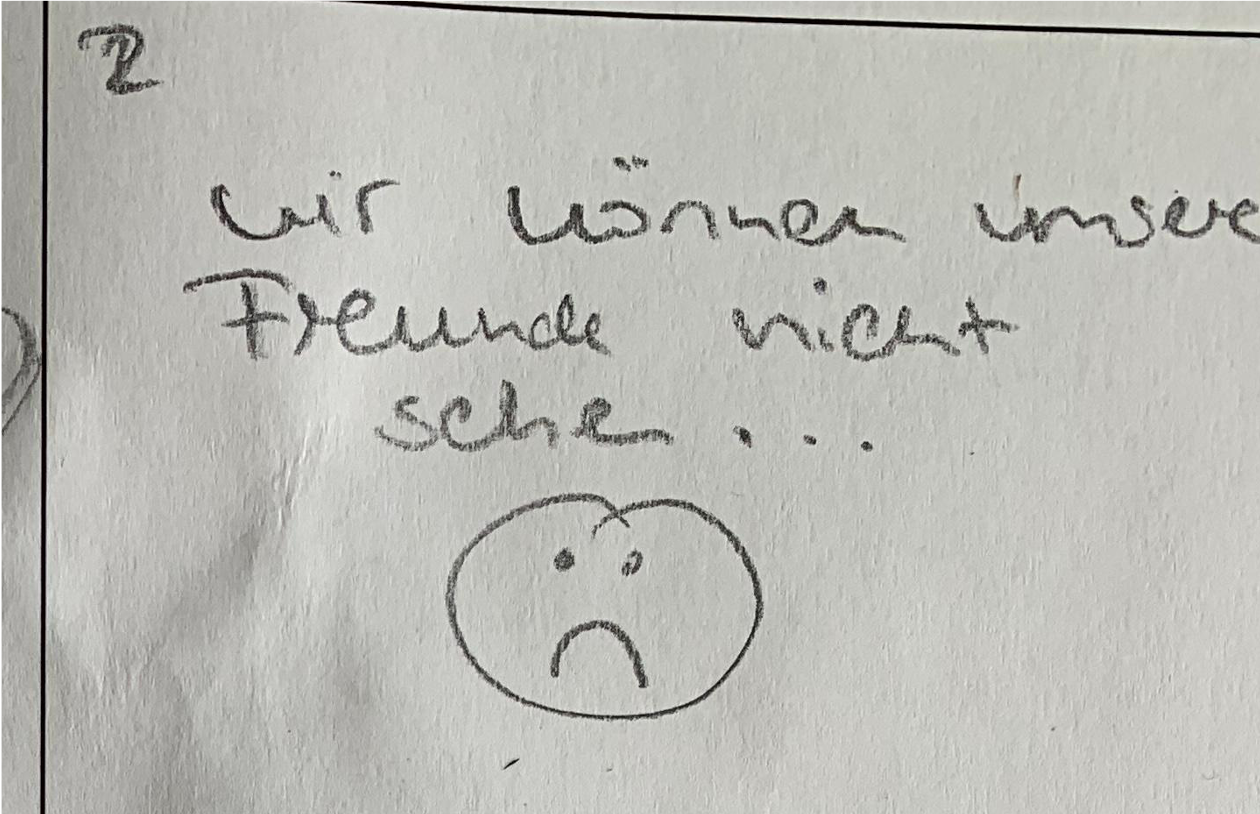 2
wir können unsere
Freunde nicht
sehen...